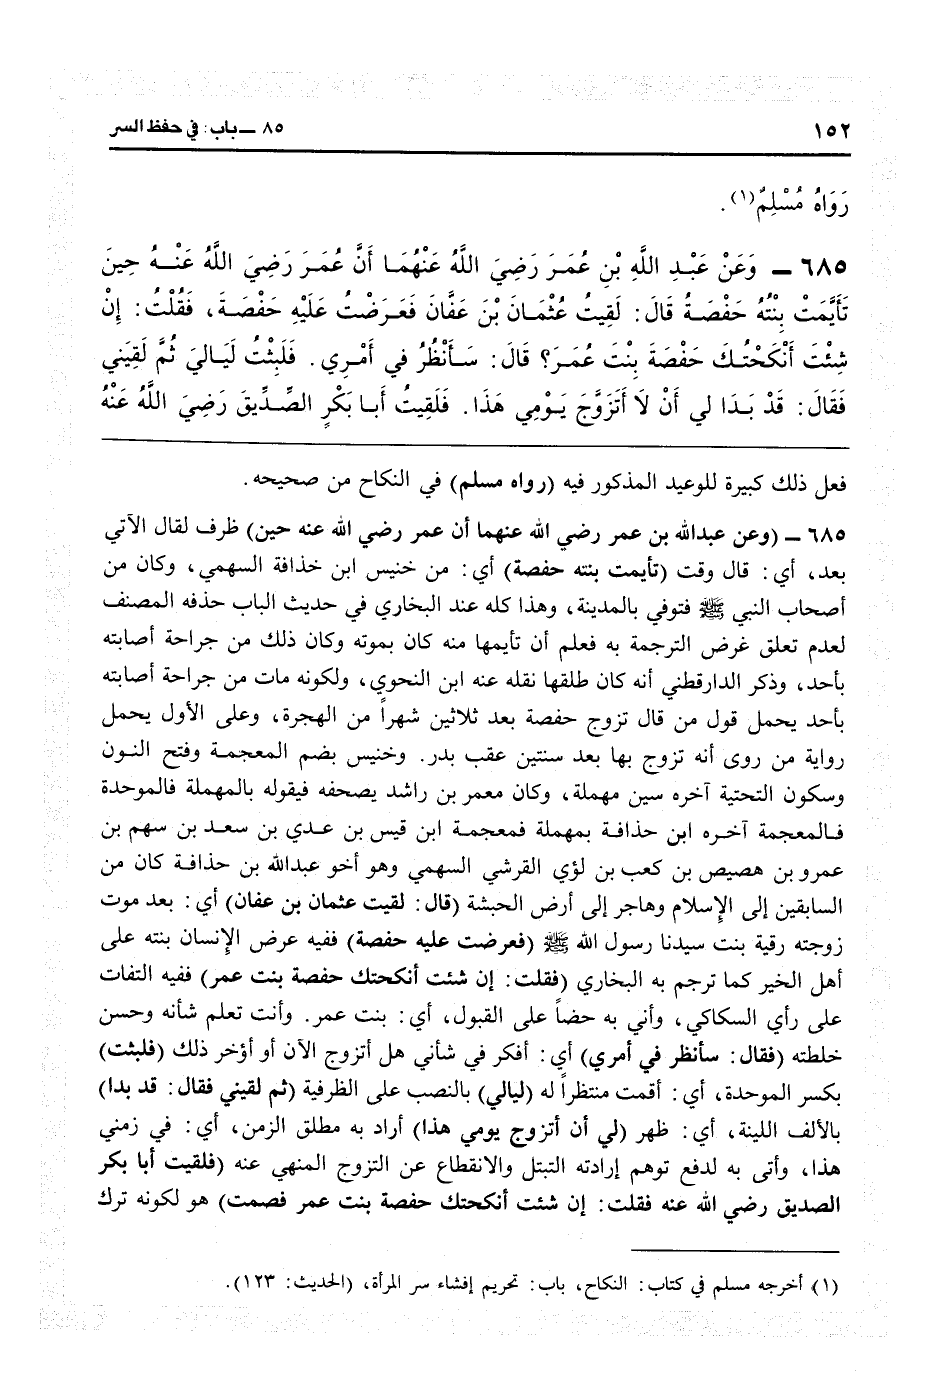 ١٥٢ ٨٥ ــ باب: في حفظ السر
رَوَاهُ مُسْلِمٌ(١).
٦٨٥ ــ وَعَنْ عَبْدِ اللَّهِ بْنِ عُمَرَ رَضِيَ اللَّهُ عَنْهُمَا أَنَّ عُمَرَ رَضِيَ اللَّهُ عَنْهُ حِينَ
تَأَيَّمَتْ بِنْتُهُ حَفْصَةُ قَالَ: لَقِيتُ عُثْمَانَ بْنَ عَفَّانَ فَعَرَضْتُ عَلَيْهِ حَفْصَةَ، فَقُلْتُ: إِنْ
شِئْتَ أَنْكَحْتُكَ حَفْصَةَ بِنْتَ عُمَرَ؟ قَالَ: سَأَنْظُرُ في أَمْرِي. فَلَبِثْتُ لَيَالِيَ ثُمَّ لَقِيَني
فَقَالَ: قَدْ بَدَا لي أَنْ لَا أَتَزَوَّجَ يَوْمِي هَذَا. فَلَقِيتُ أَبا بَكْرٍ الصِّدِّيقَ رَضِيَ اللَّهُ عَنْهُ
فعل ذلك كبيرة للوعيد المذكور فيه (رواه مسلم) في النكاح من صحيحه.
٦٨٥ ــ (وعن عبدالله بن عمر رضي الله عنهما أن عمر رضي الله عنه حين) ظرف لقال الآتي
بعد، أي: قال وقت (تأيمت بنته حفصة) أي: من خنيس ابن خذافة السهمي، وكان من
أصحاب النبي ﷺ فتوفي بالمدينة، وهذا كله عند البخاري في حديث الباب حذفه المصنف
لعدم تعلق غرض الترجمة به فعلم أن تأيمها منه كان بموته وكان ذلك من جراحة أصابته
بأحد، وذكر الدارقطني أنه كان طلقها نقله عنه ابن النحوي، ولكونه مات من جراحة أصابته
بأحد يحمل قول من قال تزوج حفصة بعد ثلاثين شهراً من الهجرة، وعلى الأول يحمل
رواية من روى أنه تزوج بها بعد سنتين عقب بدر. وخنيس بضم المعجمة وفتح النون
وسكون التحتية آخره سين مهملة، وكان معمر بن راشد يصحفه فيقوله بالمهملة فالموحدة
فالمعجمة آخره ابن حذافة بمهملة فمعجمة ابن قيس بن عدي بن سعد بن سهم بن
عمرو بن هصيص بن كعب بن لؤي القرشي السهمي وهو أخو عبدالله بن حذافة كان من
السابقين إلى الإسلام وهاجر إلى أرض الحبشة (قال: لقيت عثمان بن عفان) أي: بعد موت
زوجته رقية بنت سيدنا رسول الله ﷺ (فعرضت عليه حفصة) ففيه عرض الإنسان بنته على
أهل الخير كما ترجم به البخاري (فقلت: إن شئت أنكحتك حفصة بنت عمر) ففيه التفات
على رأي السكاكي، وأني به حضاً على القبول، أي: بنت عمر. وأنت تعلم شأنه وحسن
خلطته (فقال: سأنظر في أمري) أي: أفكر في شأني هل أتزوج الآن أو أؤخر ذلك (فلبثت)
بكسر الموحدة، أي: أقمت منتظراً له (ليالي) بالنصب على الظرفية (ثم لقيني فقال: قد بدا)
بالألف اللينة، أي: ظهر (لي أن أتزوج يومي هذا) أراد به مطلق الزمن، أي: في زمني
هذا، وأتى به لدفع توهم إرادته التبتل والانقطاع عن التزوج المنهي عنه (فلقيت أبا بكر
الصديق رضي الله عنه فقلت: إن شئت أنكحتك حفصة بنت عمر فصمت) هو لكونه ترك
(١) أخرجه مسلم في كتاب: النكاح، باب: تحريم إفشاء سر المرأة، (الحديث: ١٢٣).